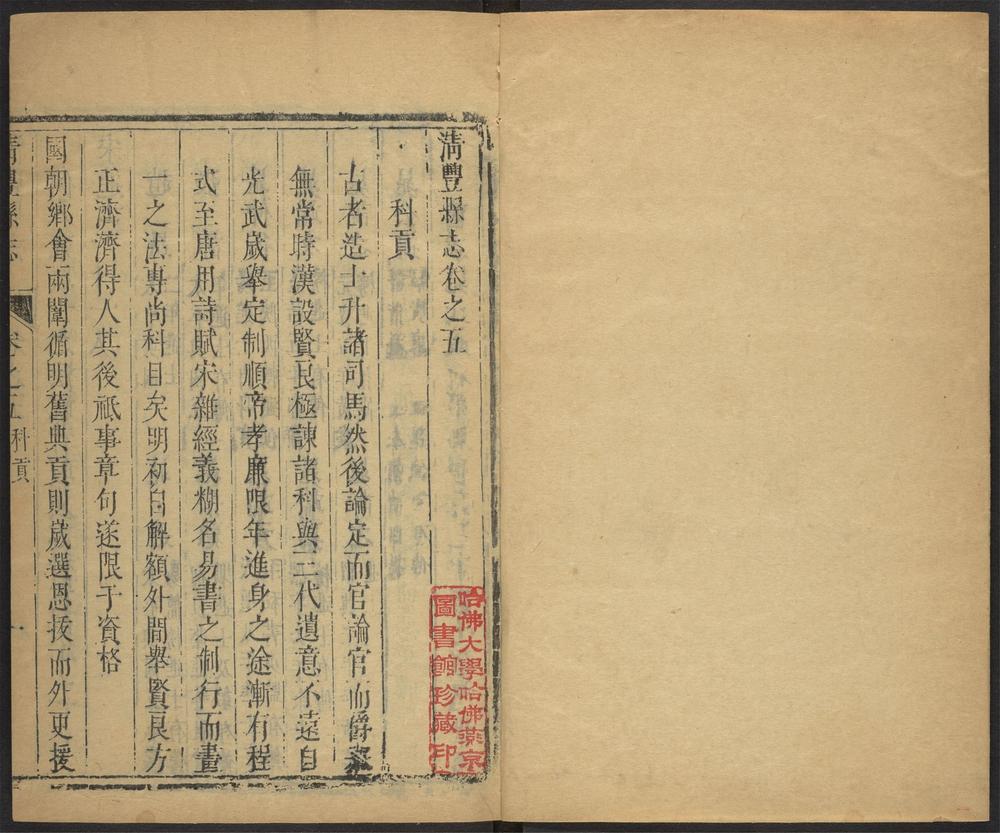 清豐縣志卷之五
科貢
古者造士升諸司馬然後論定而官論官而爵蓋
無常時漢設賢良極諫諸科與三代遺意不遠自
光武歲舉定制順帝孝廉限年進身之途漸有程
式至唐用詩賦宋雜經義糊名易書之制行而畫
一之法專尚科目矣明初自解額外間舉賢良方
正濟濟得人其後祗事章句遂限于資格
國朝鄉會兩闈循明舊典貢則歲選恩拔而外更援
清豐縣志 卷之五 科貢 一
哈佛大學哈佛燕京
圖書館珍藏印